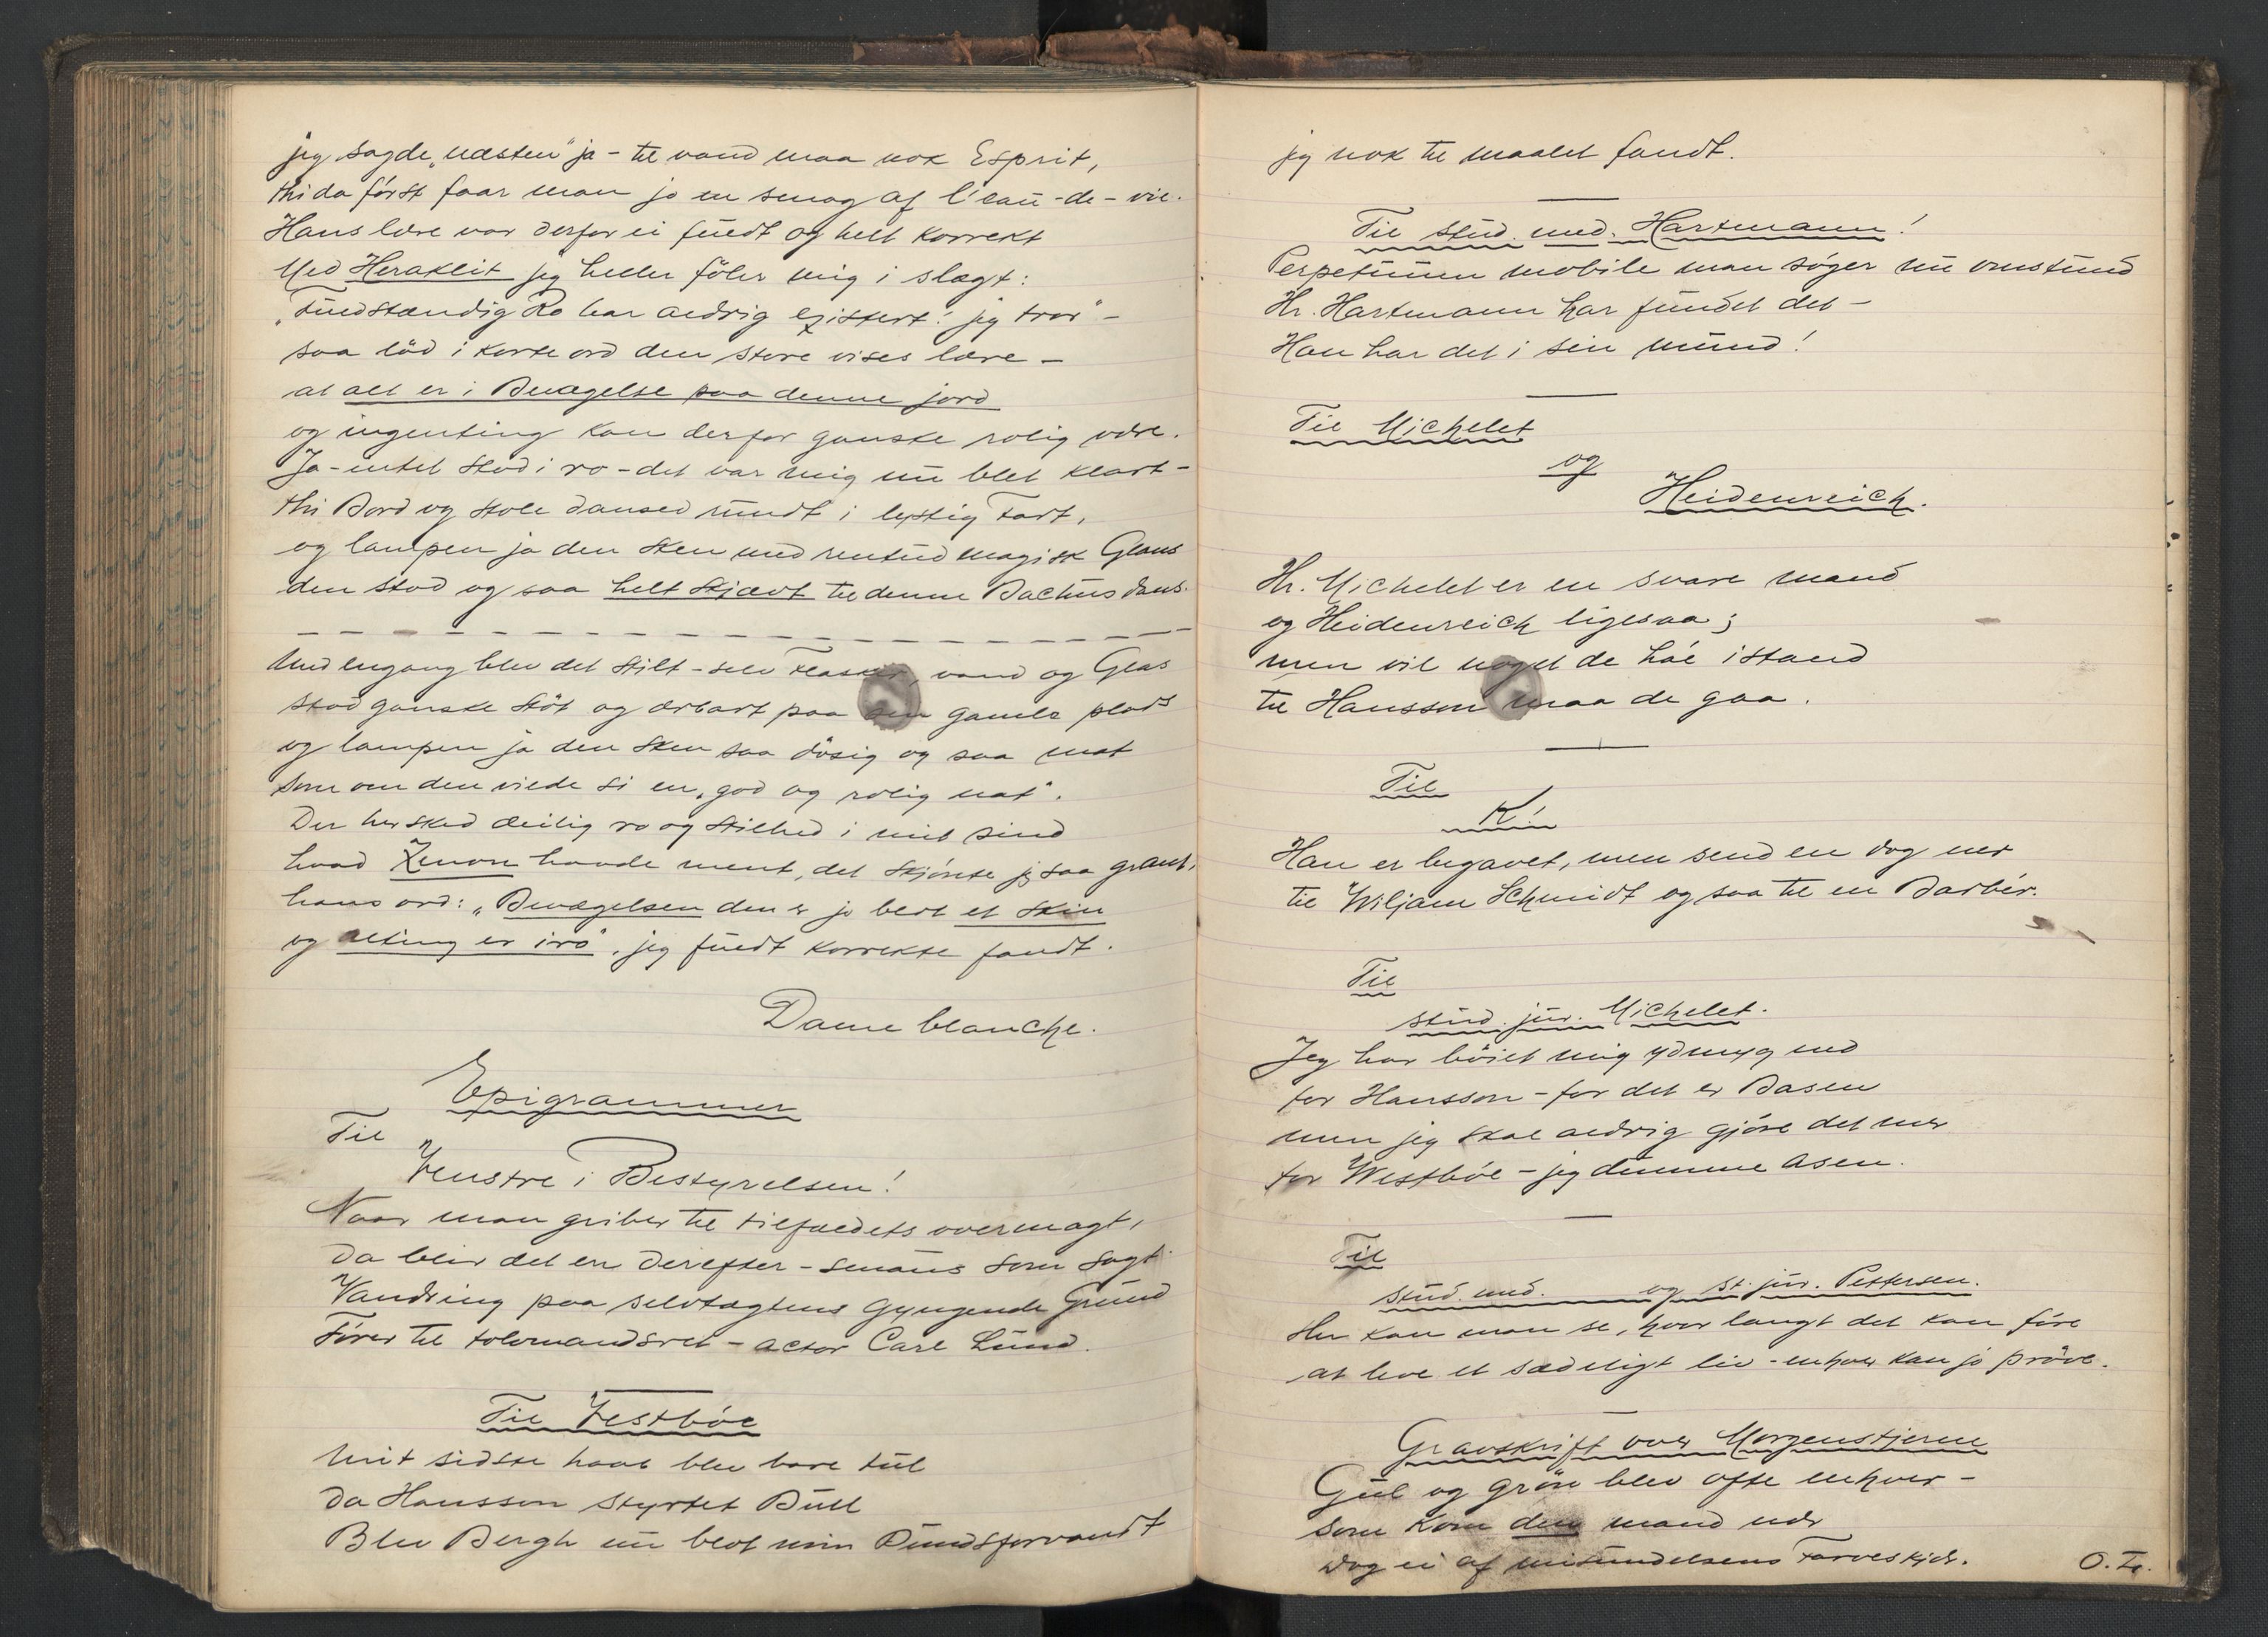 jeg sagde „næsten" ja - til vand maa nok Esprit,
thi da först faar man jo en smag af l'eau-de-vie.
Hans lære var derfor ei fuldt og helt korrekt
Med Heraklit jeg heller föler mig i slægt:
„Fuldstændig Ro har aldrig existert! jeg tror" -
saa löd i korte ord den store vises lære -
at alt er i Bevægelse paa denne jord
og ingenting kan derfor ganske rolig være.
Ja - intet stod i ro - det var mig nu blet klart -
thi Bord og stole dansed rundt i lystig Fart,
og lampen ja den sken med rentud magisk Glans
den stod og saa helt skjævt til denne Bachus dans.
Med engang blev det stilt - selv Flasker, vand og Glas
stod ganske stöt og ærbart paa sin gamle plads
og lampen ja den sken saa dösig og saa mat
som om den vilde si en „god og rolig nat".
Der hersked deilig ro og stilhed i mit sind
hvad Zenon havde ment, det skjönte jeg saa grant,
hans ord: „Bevægelsen den er jo blot et skin
og alting er i ro", jeg fuldt korrekte fandt.
Dame blanche.
Epigrammer
Til
Venstre i Bestyrelsen!
Naar man griber til tilfældets overmagt,
da blir det en derefter - smaus som sagt
Vandring paa selvtægtens gyngende Grund
Förer til tolvmandsret - actor Carl Lund.
Til Vestböe
Mit sidste haab blev bare tul
da Hansson styrtet Bull
Blev Bergh nu blot min Bundsforvandt
jeg nok til maalet fandt.
Til stud. med. Hartmann!
Perpetuum mobile man söger nu omstund
Hr. Hartmann har fundet det -
Han har det i sin mund!
Til Michelet
og
Heidenreich.
Hr. Michelet er en svare mand
og Heidenreich ligesaa;
men vil noget de ha'e istand
til Hansson maa de gaa.
Til
K!
Han er begavet, men send en dog ner
til Wiljam Schmidt og saa til en Barbér.
Til
stud. jur. Michelet.
Jeg har böiet mig ydmyg ned
for Hansson - for det er Basen
men jeg skal aldrig gjöre det mer
for Westböe - jeg dumme Asen.
Til
stud. med. og st. jur. Pettersen.
Her kan man se, hvor langt det kan före
at leve et sædeligt liv - enhver kan jo pröve.
Gravskrift over Morgenstjerne
Gul og grön blev ofte enhver -
som kom den mand nær
Dog ei af misundelsens Farveskjær.
O. Tr.